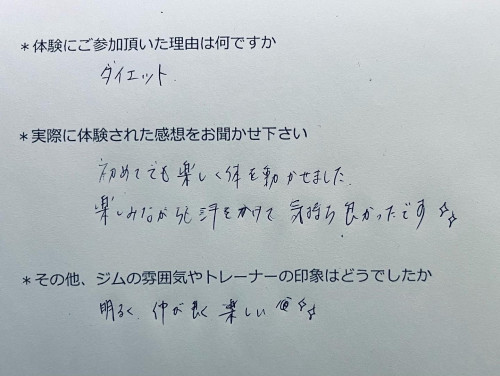 *体験にご参加頂いた理由は何ですか
ダイエット.
*実際に体験された感想をお聞かせ下さい
初めてでも楽しく体を動かせました.
楽しみながらも汗をかけて 気持ち良かったです✧✧
*その他、ジムの雰囲気やトレーナーの印象はどうでしたか
明るく、仲が良く 楽しい ✧✧